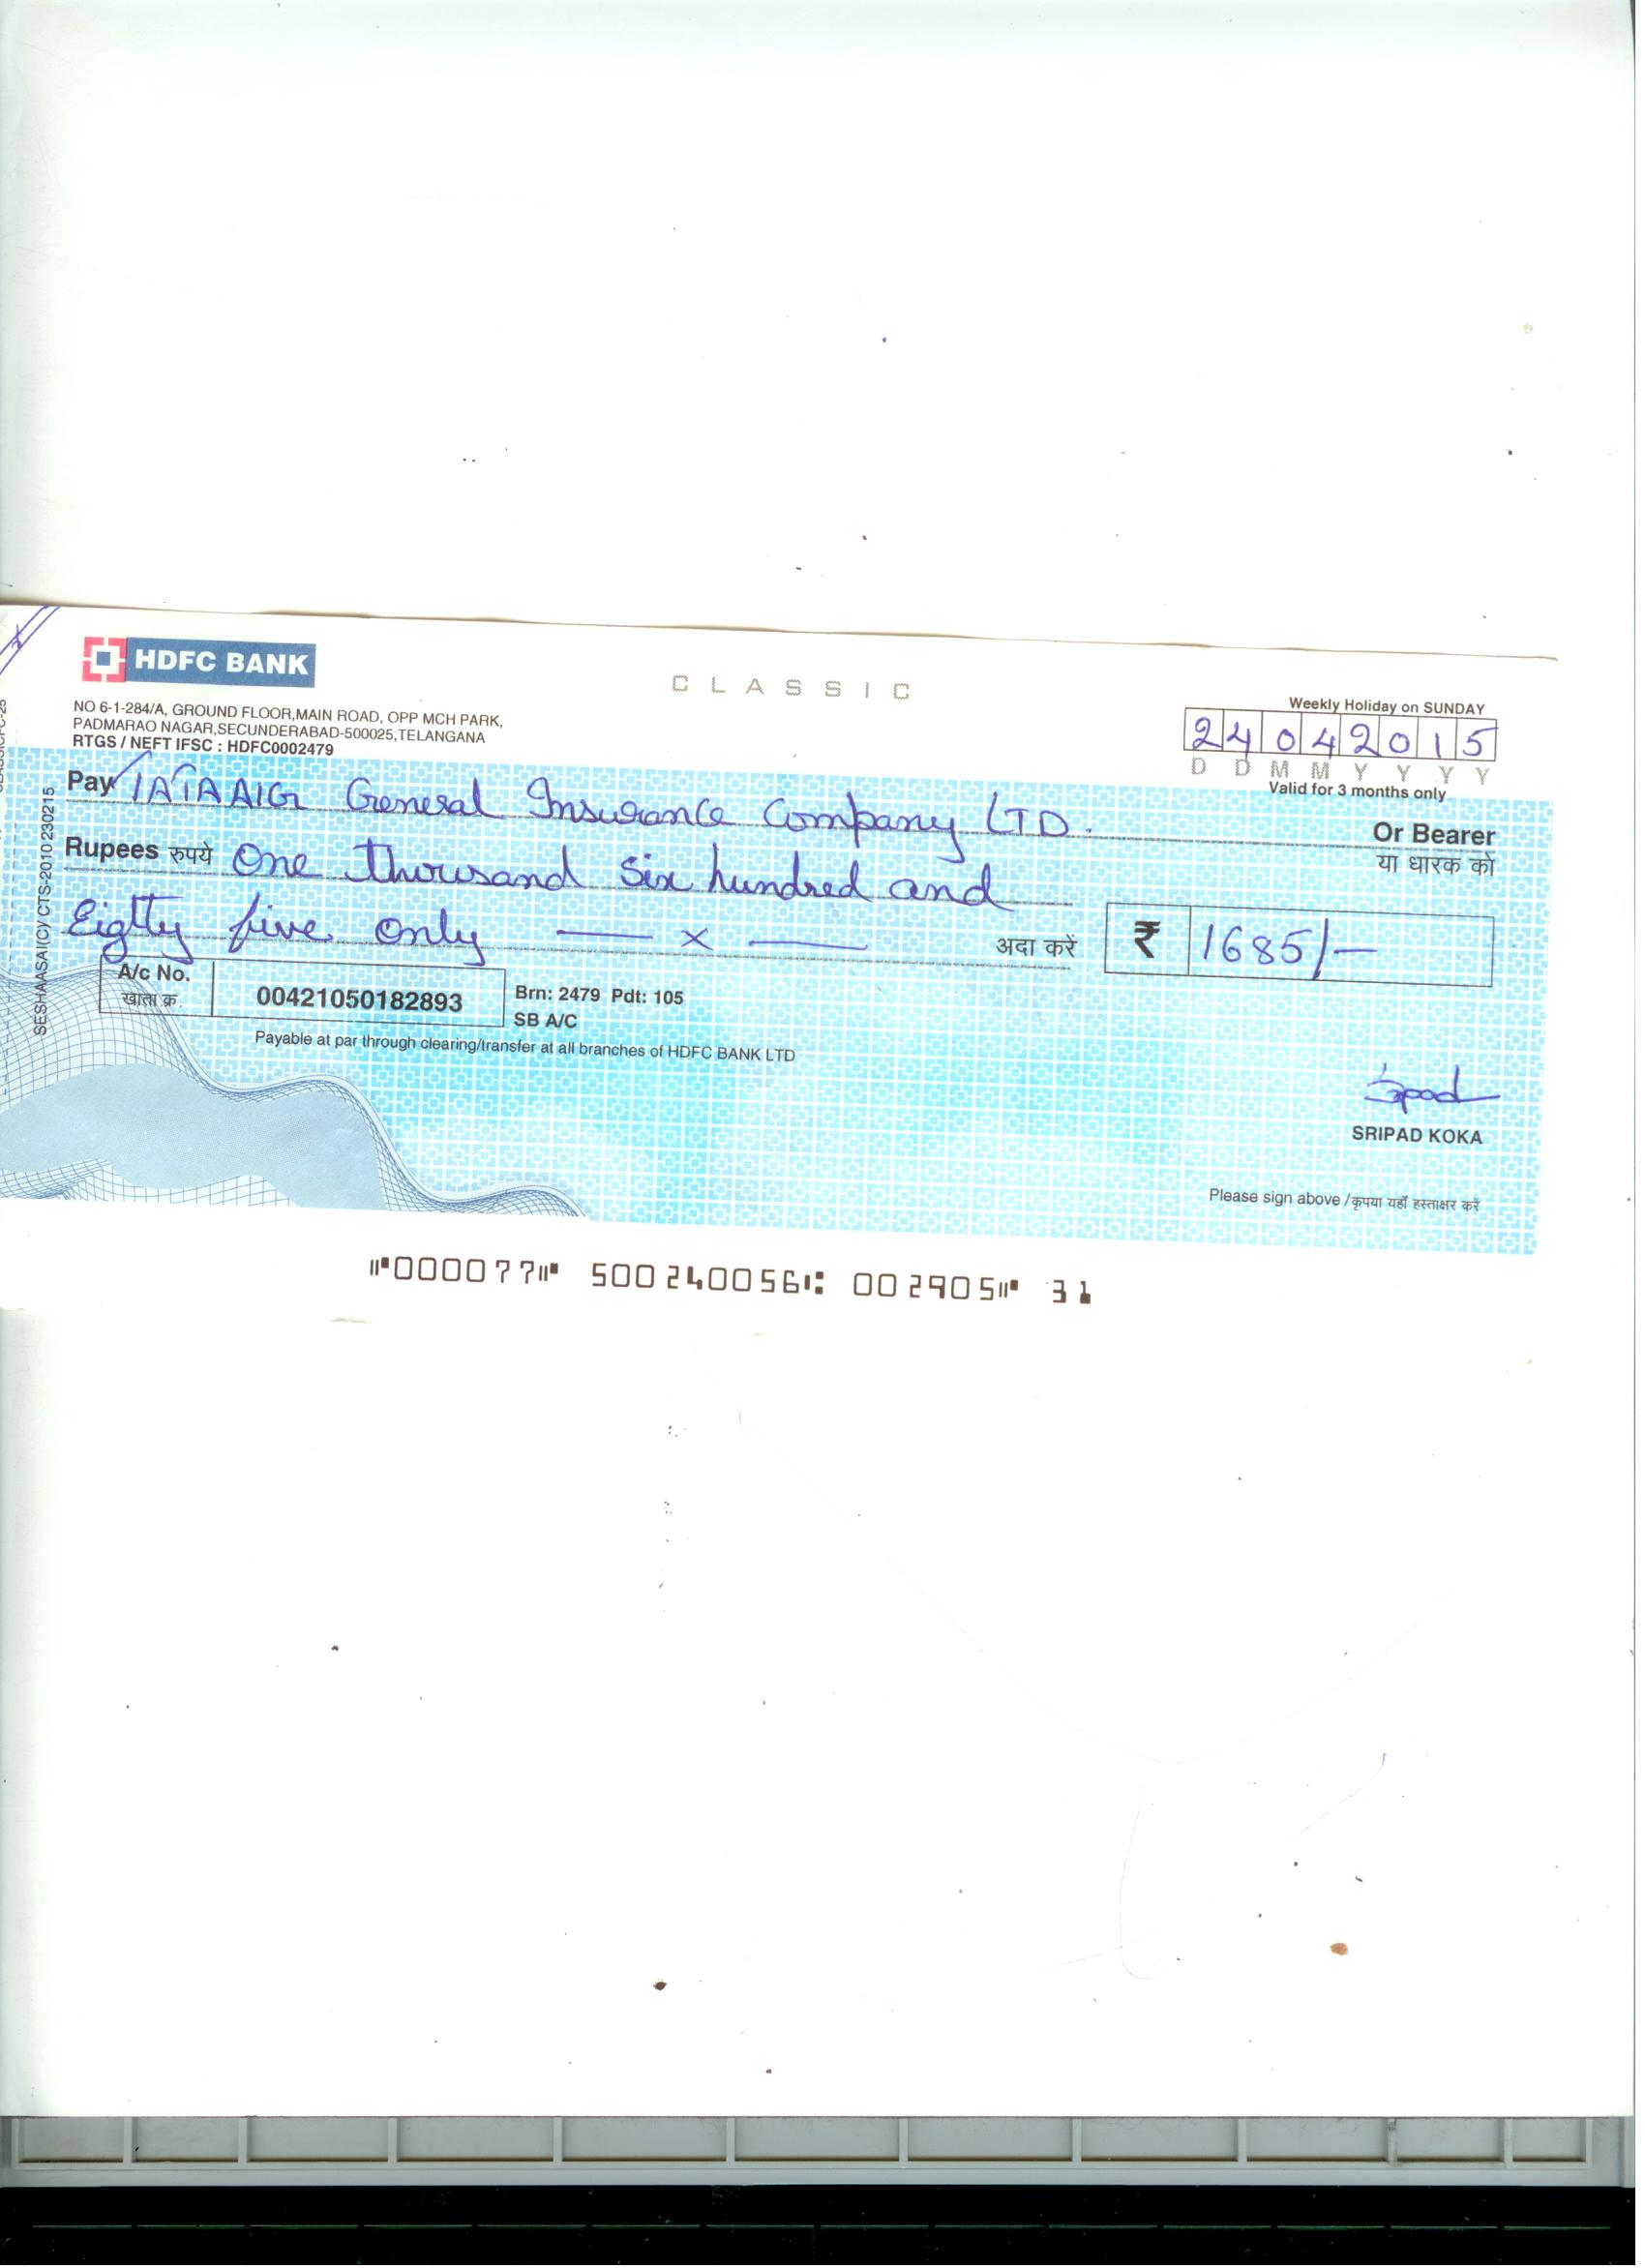 HDFC BANK
CLASSIC
NO 6-1-284/A, GROUND FLOOR,MAIN ROAD, OPP MCH PARK,
PADMARAO NAGAR,SECUNDERABAD-500025,TELANGANA
RTGS / NEFT IFSC : HDFC0002479
Weekly Holiday on SUNDAY
24042015
D D M M Y Y Y Y
Valid for 3 months only
Pay TATAAIG General Insurance Company LTD.
Or Bearer
या धारक को
Rupees रुपये One thousand six hundred and
Eighty five only — x —
अदा करें
₹ 1685/-
A/c No.
खाता क्र.
00421050182893
Brn: 2479 Pdt: 105
SB A/C
Payable at par through clearing/transfer at all branches of HDFC BANK LTD
Spad
SRIPAD KOKA
Please sign above /कृपया यहाँ हस्ताक्षर करें
⑈000077⑈ 500240056⑆ 002905⑈ 31
SESHAASAI(C)/ CTS-2010 230215